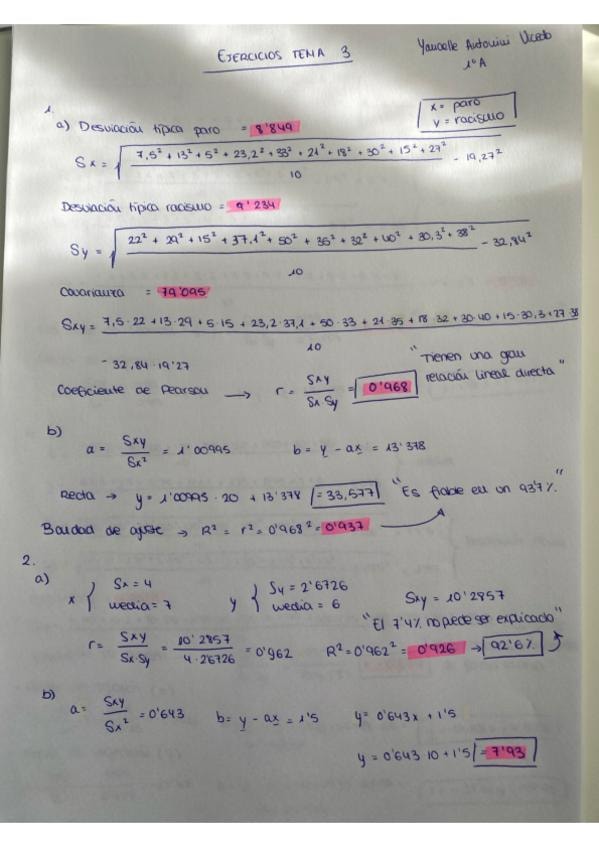 EJERCICIOS TEMA 3
Yanaelle Antonini Uceda
1º A
1.
a) Desviación típica paro = 8'849
x = paro
y = racismo
Sx = √ 7,5² + 13² + 5² + 23,2² + 33² + 21² + 18² + 30² + 15² + 27² / 10 - 19,27²
Desviación típica racismo = 9'234
Sy = √ 22² + 29² + 15² + 37,1² + 50² + 35² + 32² + 40² + 30,3² + 38² / 10 - 32,84²
Covarianza = 79'095
Sxy = 7,5·22 + 13·29 + 5·15 + 23,2·37,1 + 50·33 + 21·35 + 18·32 + 30·40 + 15·30,3 + 27·38 / 10
- 32,84·19'27
Coeficiente de Pearson → r = Sxy / Sx Sy = 0'968
"Tienen una gran relación lineal directa"
b)
a = Sxy / Sx² = 1'00995 b = y - ax = 13'378
Recta → y = 1'00995 · 20 + 13'378 = 33,577 "Es fiable en un 93'7%."
Bondad de ajuste → R² = r² = 0'968² = 0'937
2.
a)
x { Sx = 4 media = 7 y { Sy = 2'6726 media = 6 Sxy = 10'2857
"El 7'4% no puede ser explicado"
r = Sxy / Sx·Sy = 10'2857 / 4·2'6726 = 0'962 R² = 0'962² = 0'926 → 92'6%
b)
a = Sxy / Sx² = 0'643 b = y - ax = 1'5 y = 0'643x + 1'5
y = 0'643·10 + 1'5 = 7'93